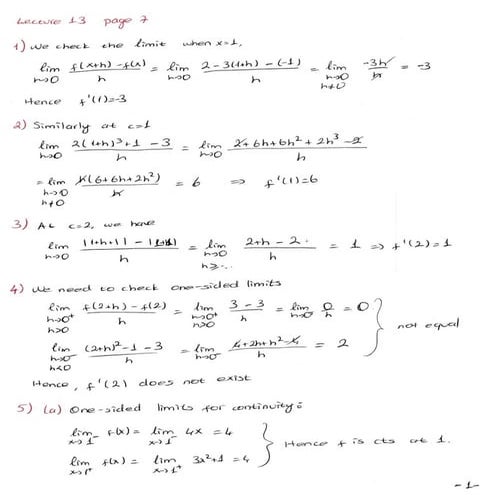 Lecture 13 page 7
1) We check the limit when x=1,
lim h→0 f(x+h)-f(x)/h = lim h→0 2-3(1+h)-(-1)/h = lim h→0 h≠0 -3h/h = -3
Hence f'(1)=-3
2) Similarly at c=1
lim h→0 2(1+h)³+1-3/h = lim h→0 2+6h+6h²+2h³-2/h
= lim h→0 h≠0 h(6+6h+2h²)/h = 6 ⇒ f'(1)=6
3) At c=2, we have
lim h→0 = lim h→0 2+h-2/h = 1 ⇒ f'(2)=1
4) We need to check one-sided limits
lim h→0⁺ h>0 f(2+h)-f(2)/h = lim h→0⁺ h>0 3-3/h = lim h→0⁺ 0/h = 0
lim h→0⁻ h<0 (2+h)²-1-3/h = lim h→0⁻ 4+2h+h²-4/h = 2
not equal
Hence, f'(2) does not exist
5) (a) One-sided limits for continuity:
lim x→1⁻ f(x) = lim x→1⁻ 4x = 4
lim x→1⁺ f(x) = lim x→1⁺ 3x²+1 = 4
Hence f is cts at 1.
-1-